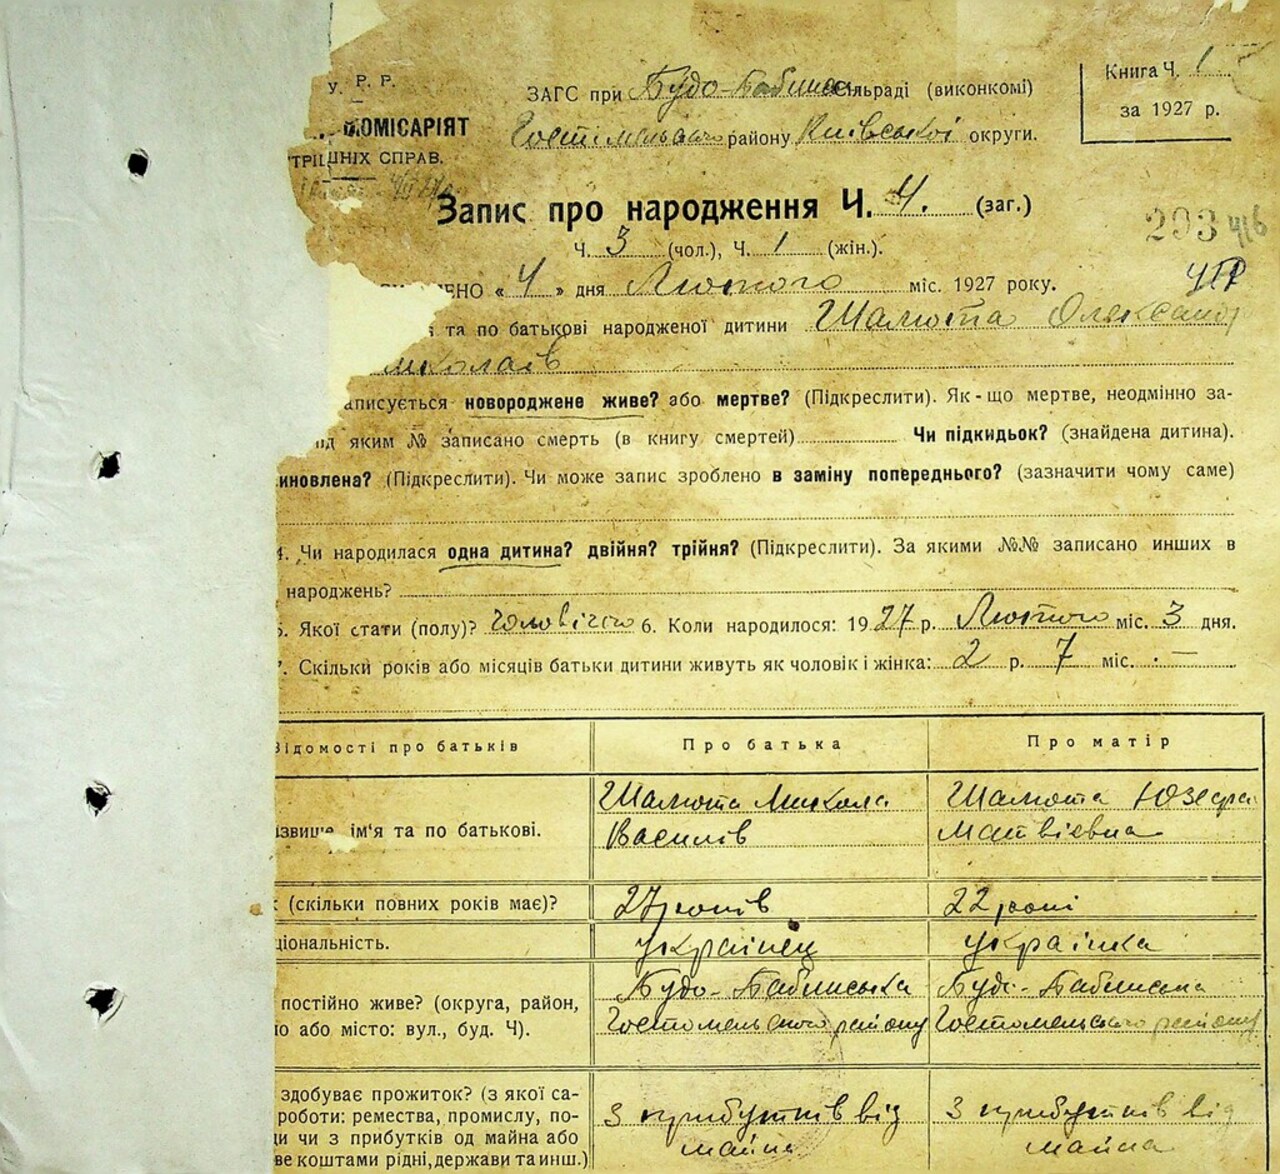 У. Р. Р.
ЗАГС при Будо-Бабинській сільраді (виконкомі)
Книга Ч. 1
КОМІСАРІЯТ
Гостомельського району Київської округи.
за 1927 р.
ТРІШНІХ СПРАВ.
Запис про народження Ч. 4. (заг.)
Ч. 3 (чол.), Ч. 1 (жін.).
293 416
ЕНО «4» дня Лютого міс. 1927 року.
та по батькові народженої дитини Шалюта Олександр
миколаїв
аписується новороджене живе? або мертве? (Підкреслити). Як-що мертве, неодмінно за-
під яким № записано смерть (в книгу смертей) Чи підкидьок? (знайдена дитина).
иновлена? (Підкреслити). Чи може запис зроблено в заміну попереднього? (зазначити чому саме)
4. Чи народилася одна дитина? двійня? трійня? (Підкреслити). За якими №№ записано инших в
народжень?
5. Якої стати (полу)? Чоловічого 6. Коли народилося: 1927 р. Лютого міс. 3 дня.
7. Скільки років або місяців батьки дитини живуть як чоловік і жінка: 2 р. 7 міс. —
Відомості про батьків Про батька Про матір
Шалюта Микола Шалюта Юзефа
ізвище, ім'я та по батькові. Василів Матвієвна
к (скільки повних років має)? 27 років 22 рокі
ціональність. українец українка
постійно живе? (округа, район, Будо-Бабинська Будо-Бабинська
ло або місто: вул., буд. Ч). Гостомельского району Гостомельського району
здобуває прожиток? (з якої са-
роботи: ремества, промислу, по- З прибутків від З прибутків від
ди чи з прибутків од майна або майна майна
ве коштами рідні, держави та инш.)